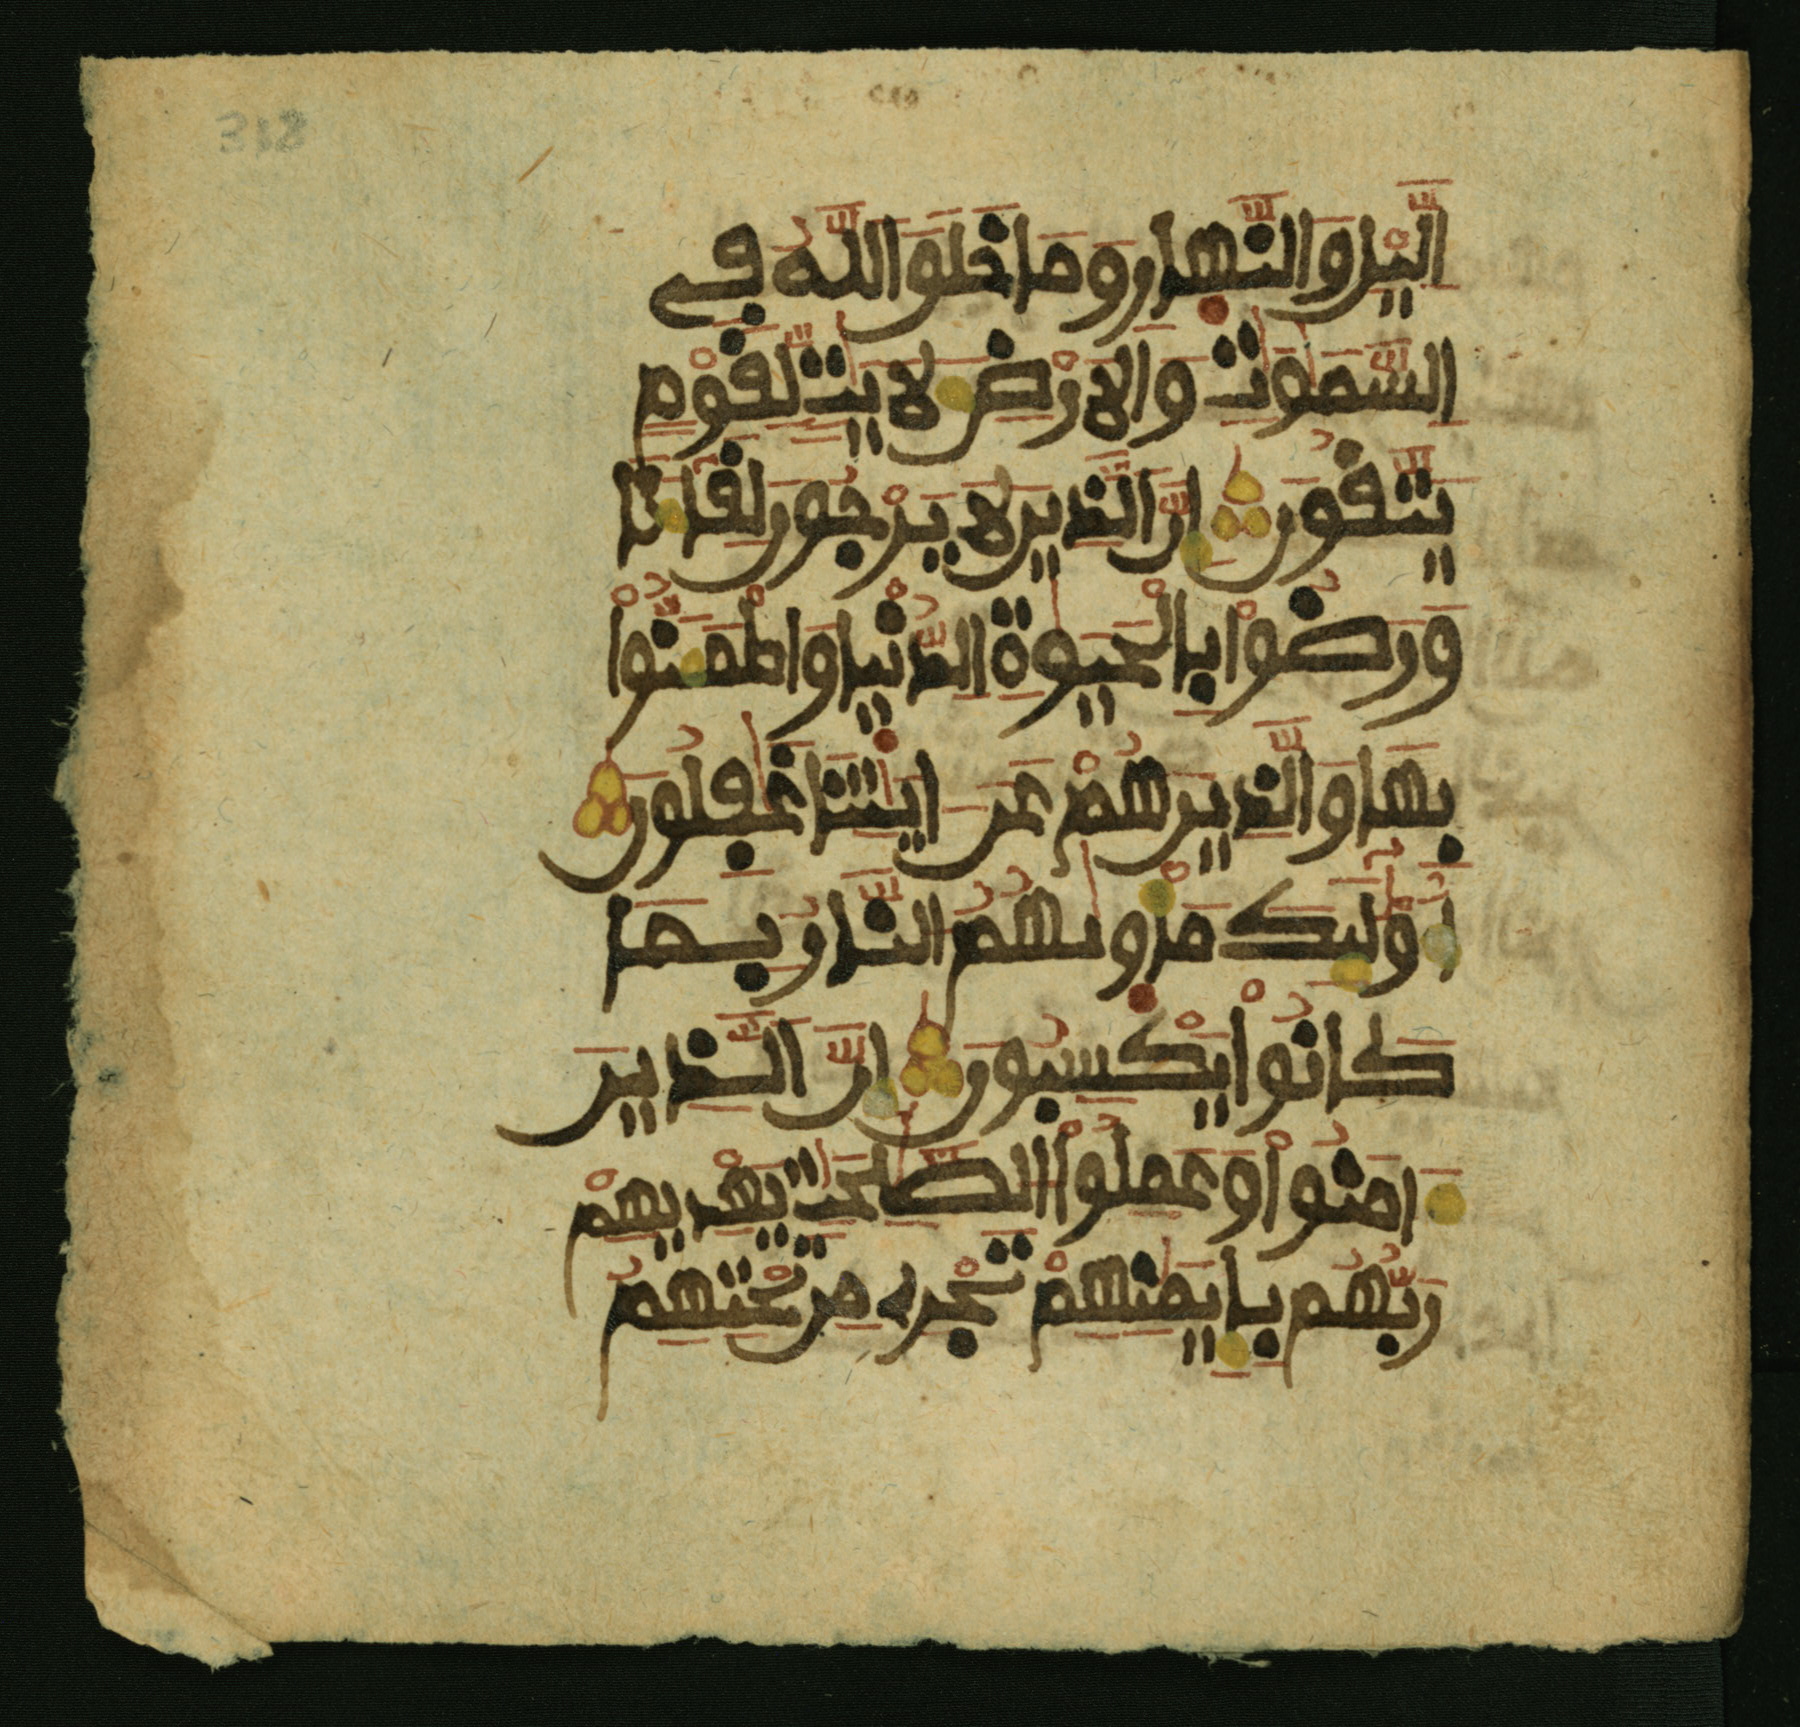 اليل والنهار وما خلق الله في
السموت والارض لايت لقوم
يتقون ان الذين لا يرجون لقاءنا
ورضوا بالحيوة الدنيا واطمئنوا
بها والذين هم عن ايتنا غفلون
اولئك مأويهم النار بما
كانوا يكسبون ان الذين
ءامنوا وعملوا الصلحت يهديهم
ربهم بايمنهم تجرے من تحتهم